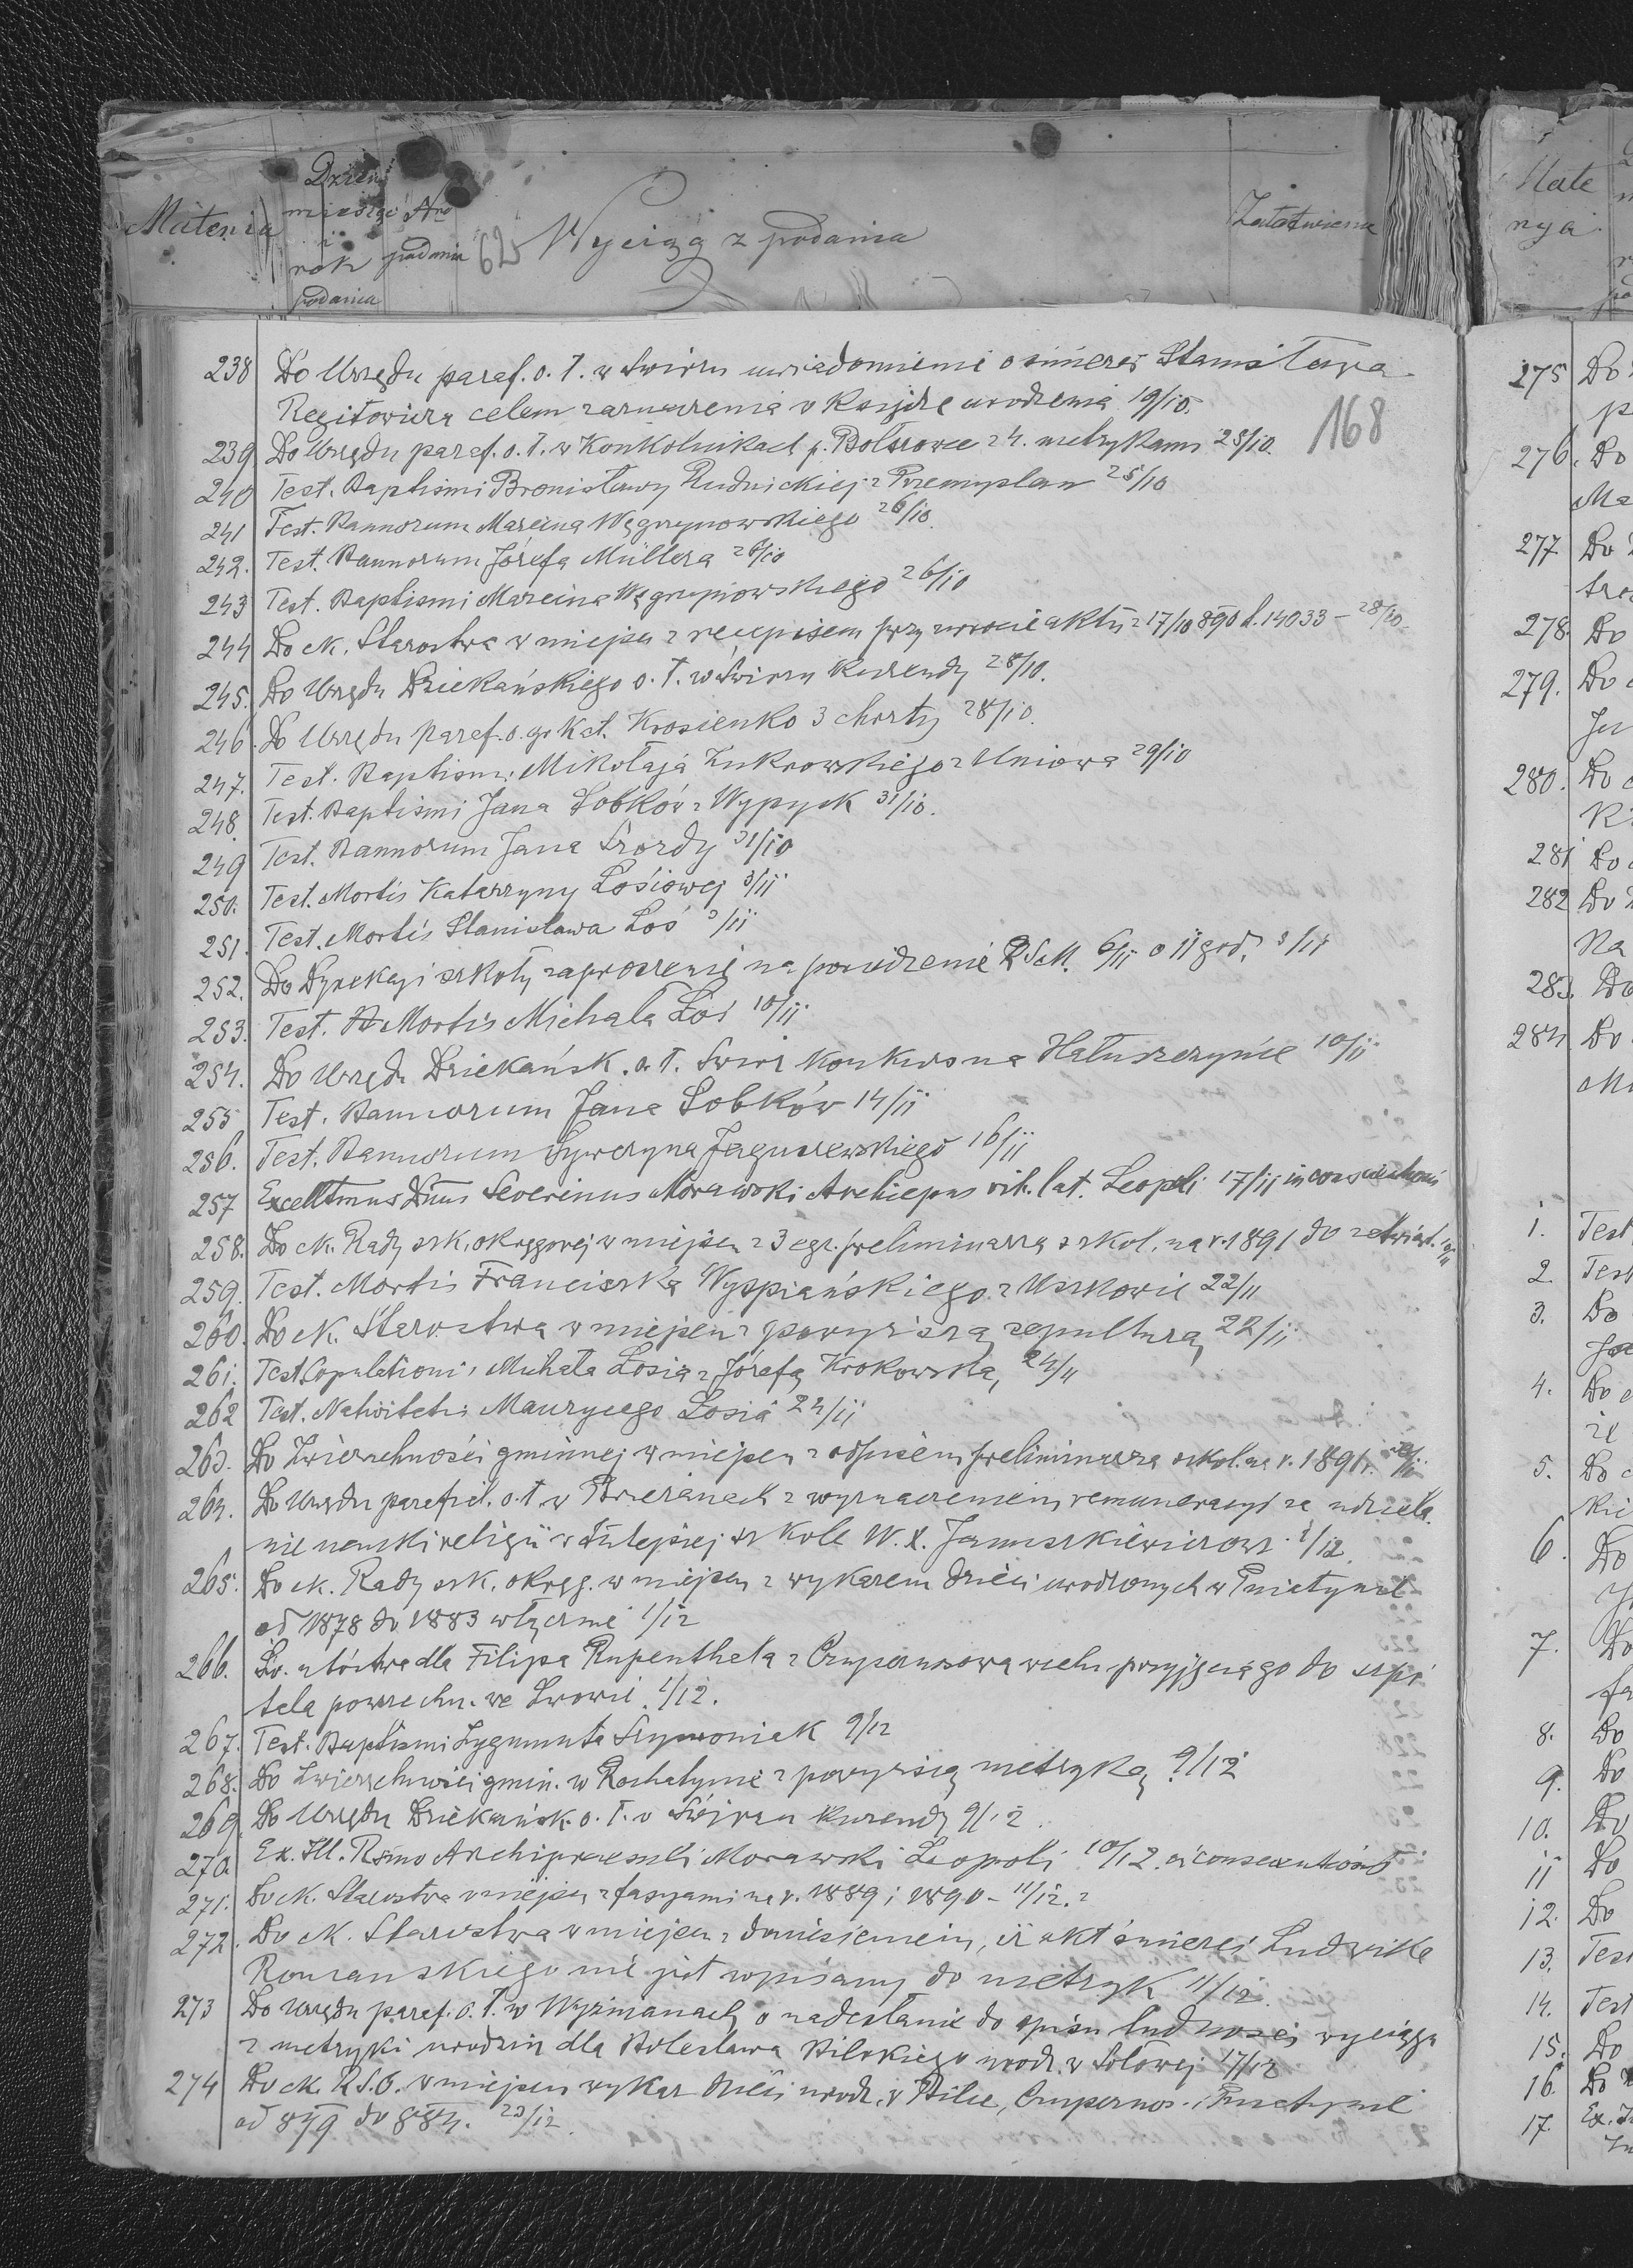 Materia
Dzień
miesiąc
i
rok
podania
Nro
podania
62
Wyciąg z podania
Załatwienie
168
238 Do Urzędu paraf. o. ł. w Świrzu uwiadomienie o śmierci Stanisława
celem zaznaczenia w Księdze urodzenia 19/10.
239 Do Urzędu paraf. o. ł. w Konkolnikach p. Bołszowce z 4. metrykami 25/10.
240 Test. Baptismi Bronisławy Rudnickiej z Przemyślan 25/10
241 Test. Bannorum Marcina Węgrzynowskiego 26/10.
242. Test. Bannorum Józefa Müllera 26/10
243 Test. Baptismi Marcina Węgrzynowskiego 26/10
244 Do ck. Starostwa w miejscu z recepisem przy zwrocie aktu z 17/10 890 l. 14033 – 28/10
245. Do Urzędu Dziekańskiego o. ł. w Świrzu Kurendy 28/10.
246. Do Urzędu paraf. o. gr kat. Krosienko 3 28/10.
247. Test. Baptismi Mikołaja Żukrowskiego z Uniowa 29/10
248. Test. Baptismi Jana Sobków z Wypysk 31/10.
249 Test. Bannorum Jana 31/10
250. Test. Mortis Katarzyny Łosiowej 3/11
251. Test. Mortis Stanisława Łoś 3/11
252. Do Dyrekcyi szkoły zaproszenie na posiedzenie RSM. 6/11 o 11 god. 3/11
253. Test. Mortis Michała Łoś 10/11
254. Do Urzędu Dziekańsk. o. ł. Świrz Konkurs na Hałuszczyńce 10/11
255 Test. Bannorum Jana Sobków 14/11
256. Test. Bannorum Seweryna Jaguszewskiego 16/11
257 Excelltmus Dnus Severinus Morawski Archiepus rit. lat. Leopoli 17/11
258. Do ck. Rady szk. okręgowej w miejscu z 3 egz. preliminarza szkol. na r. 1891 do
259. Test. Mortis Franciszka Wyspiańskiego z Uszkowic 22/11
260. Do ck. Starostwa w miejscu z powyższą sepulturą 22/11
261. Test. Copulationis Michała Łosia z Józefą Krokowską, 24/11
262 Test. Nativitatis Maurycego Łosia 24/11
263. Do Zwierzchności gminnej w miejscu z odpisem preliminarza szkol. na r. 1891.
264. Do Urzędu parafial. o. ł. w Brzeżanach z wyznaczeniem remuneracyi za udziela-
nie nauki religii w tutejszej szkole W. X. Januszkiewiczowi 1/12.
265. Do ck. Rady szk. okręg. w miejscu z wykazem dzieci urodzonych w Pniatynie
od 1878 do 1883 włącznie 1/12
266. Św. ubóstwa dla Filipa Rupenthala z Czupernosowa przyjęcia go do szpi
tala powszechn. we Lwowie 1/12.
267. Test. Baptismi Zygmunta Szymoniak 9/12
268. Do Zwierzchności gmin. w Rohatynie z powyższą metryką 9/12
269. Do Urzędu Dziekańsk. o. ł. w Świrzu Kurendy 9/12.
270. Ex. Ill. Rsmo Archipraesuli Morawski Leopoli 10/12.
271. Do ck. Starostwa w miejscu z fasyami na r. 1889 i 1890 – 11/12.
272. Do ck. Starostwa w miejscu z doniesieniem, iż akt śmierci Ludwika
Romanskiego nie jest wpisany do metryk 11/12.
273 Do Urzędu paraf. o. ł. w Wyżnianach o nadesłanie do spisu ludności wyciągu
z metryki urodzin dla Bolesława Bilskiego urodz. w Sołowej 17/12
274 Do ck. R.S.O. w miejscu wykaz dzieci urodz. w Bilce, Czupernos. i Pniatynie
od 879 do 884. 23/12.
Mate
rya
275 Do
276. Do
Ma
277 Do
278. Do
279. Do
280. Do
281 Do
282 Do
Na
283. Do
284. Do
1. Test
2. Test
3. Do
4. Do
5. Do
6. Do
7. Do
8. Do
9. Do
10. Do
11 Do
12. Do
13. Test
14. Test
15. Do
16. Do
17. Ex.